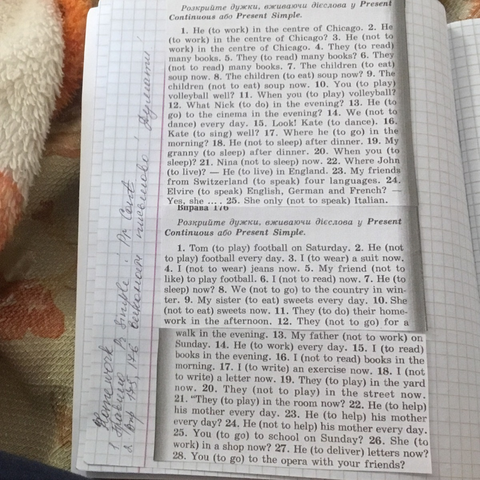 Розкрийте дужки, вживаючи дієслова у Present
Continuous або Present Simple.
1. He (to work) in the centre of Chicago. 2. He
(to work) in the centre of Chicago? 3. He (not to
work) in the centre of Chicago. 4. They (to read)
many books. 5. They (to read) many books? 6. They
(not to read) many books. 7. The children (to eat)
soup now. 8. The children (to eat) soup now? 9. The
children (not to eat) soup now. 10. You (to play)
volleyball well? 11. When you (to play) volleyball?
12. What Nick (to do) in the evening? 13. He (to
go) to the cinema in the evening? 14. We (not to
dance) every day. 15. Look! Kate (to dance). 16.
Kate (to sing) well? 17. Where he (to go) in the
morning? 18. He (not to sleep) after dinner. 19. My
granny (to sleep) after dinner. 20. When you (to
sleep)? 21. Nina (not to sleep) now. 22. Where John
(to live)? — He (to live) in England. 23. My friends
from Switzerland (to speak) four languages. 24.
Elvire (to speak) English, German and French? —
Yes, she .... 25. She only (not to speak) Italian.
Вправа 176
Розкрийте дужки, вживаючи дієслова у Present
Continuous або Present Simple.
1. Tom (to play) football on Saturday. 2. He (not
to play) football every day. 3. I (to wear) a suit now.
4. I (not to wear) jeans now. 5. My friend (not to
like) to play football. 6. I (not to read) now. 7. He (to
sleep) now? 8. We (not to go) to the country in win-
ter. 9. My sister (to eat) sweets every day. 10. She
(not to eat) sweets now. 11. They (to do) their home-
work in the afternoon. 12. They (not to go) for a
walk in the evening. 13. My father (not to work) on
Sunday. 14. He (to work) every day. 15. I (to read)
books in the evening. 16. I (not to read) books in the
morning. 17. I (to write) an exercise now. 18. I (not
to write) a letter now. 19. They (to play) in the yard
now. 20. They (not to play) in the street now.
21. "They (to play) in the room now? 22. He (to help)
his mother every day. 23. He (to help) his mother
every day? 24. He (not to help) his mother every day.
25. You (to go) to school on Sunday? 26. She (to
work) in a shop now? 27. He (to deliver) letters now?
28. You (to go) to the opera with your friends?
Homework